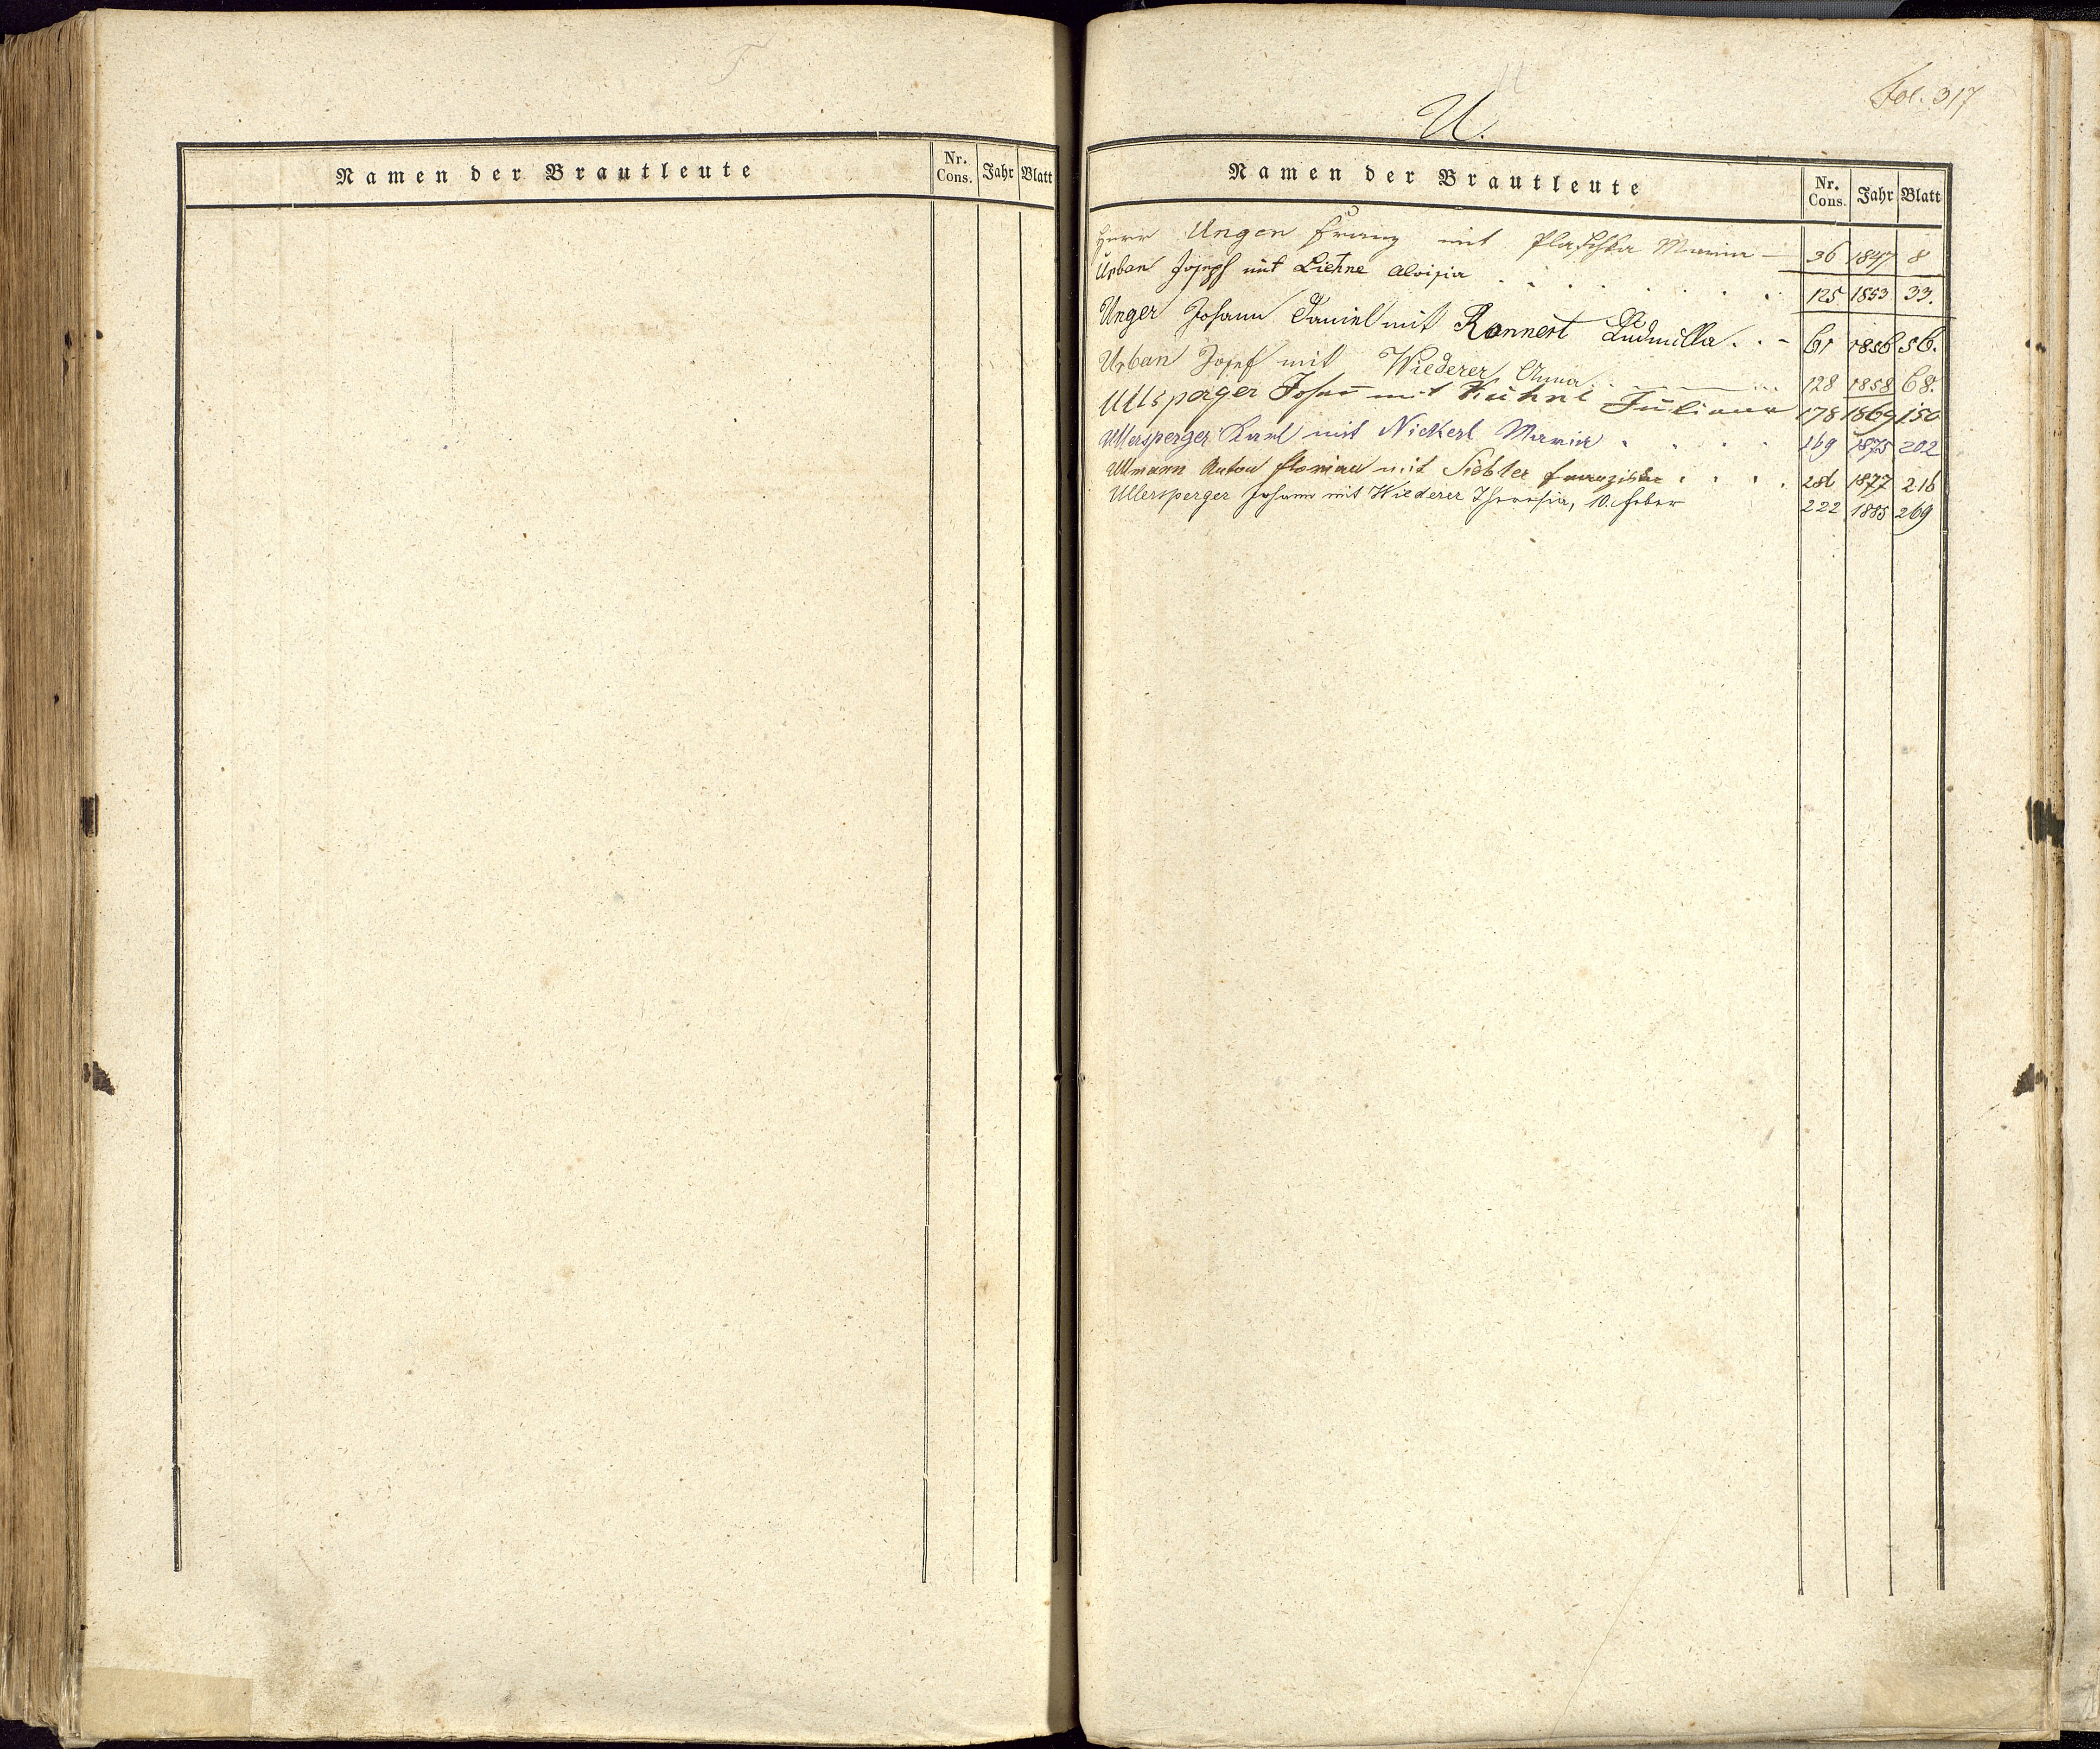 T
Namen der Brautleute Nr. Cons. Jahr Blatt
Fol. 317
U
U.
Namen der Brautleute Nr. Cons. Jahr Blatt
Herr Unger Franz mit Plaschka Maria – 36 1847 8
Urban Joseph mit Liehne Aloisia . . . . . . . 125 1853 33.
Unger Johann Daniel mit Rannert Ludmilla . . - 61 1856 56.
Urban Josef mit Wiederer Anna 128 1858 68.
Ullsperger Johan̄ mit Kühnl Juliana 178 1869 150
Ullersperger Karl mit Nickerl Maria . . . . 169 1875 202
Ullmann Anton Florian mit Siebler Franziska . . . . 286 1877 216
Ullersperger Johann mit Wiederer Theresia, 10. Feber 222 1885 269